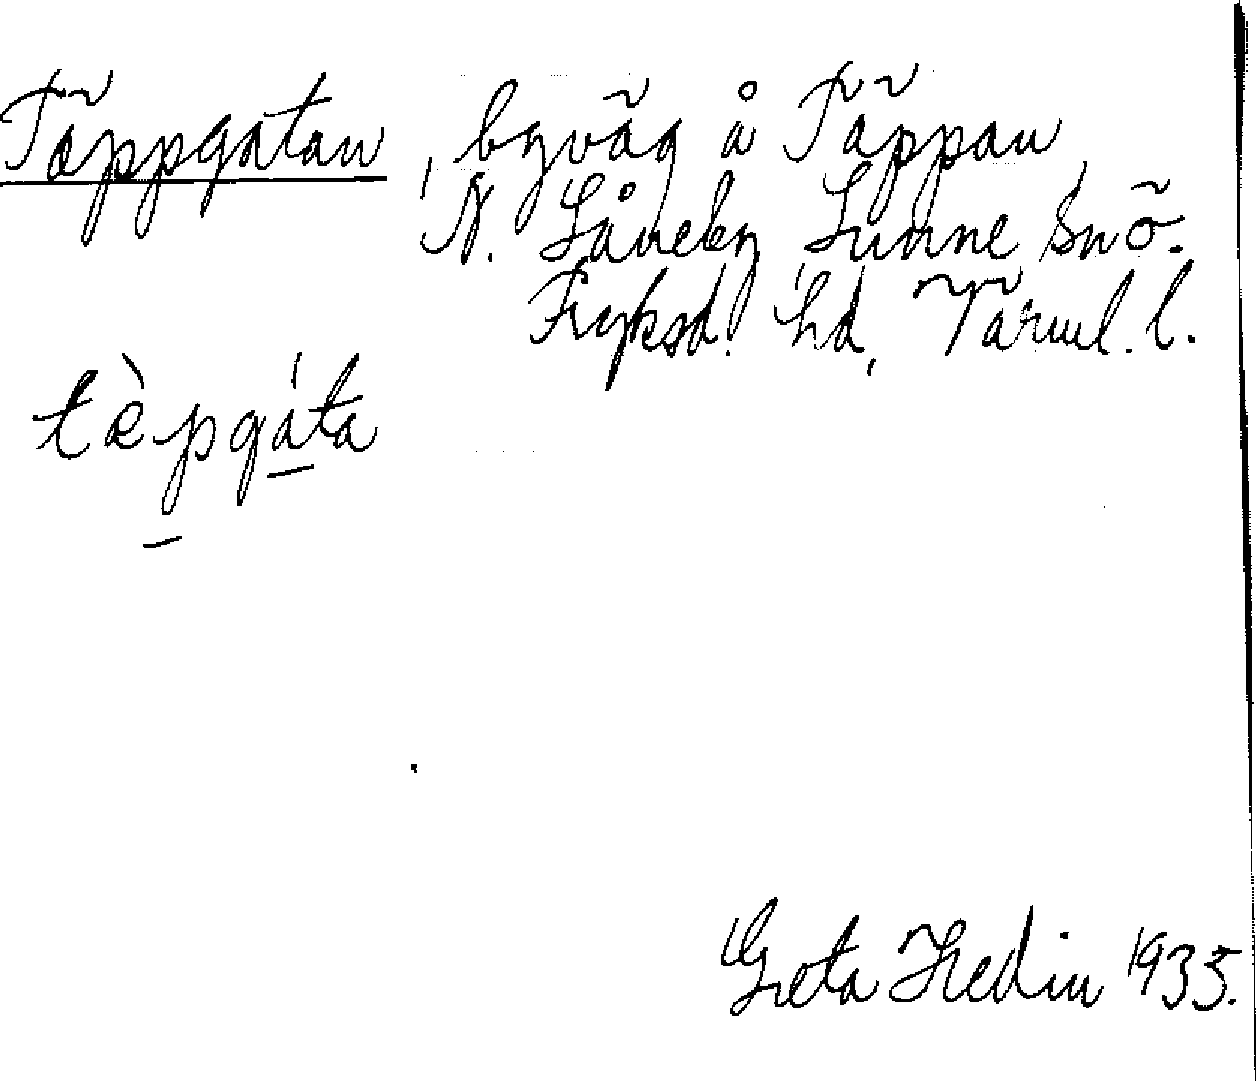 Täppgatan, byväg å Täppan,
N. Såneby Sunne sn ö.
Fryksd. hd, Värml. l.
tæ̀pgáta
Greta Hedin 1935.